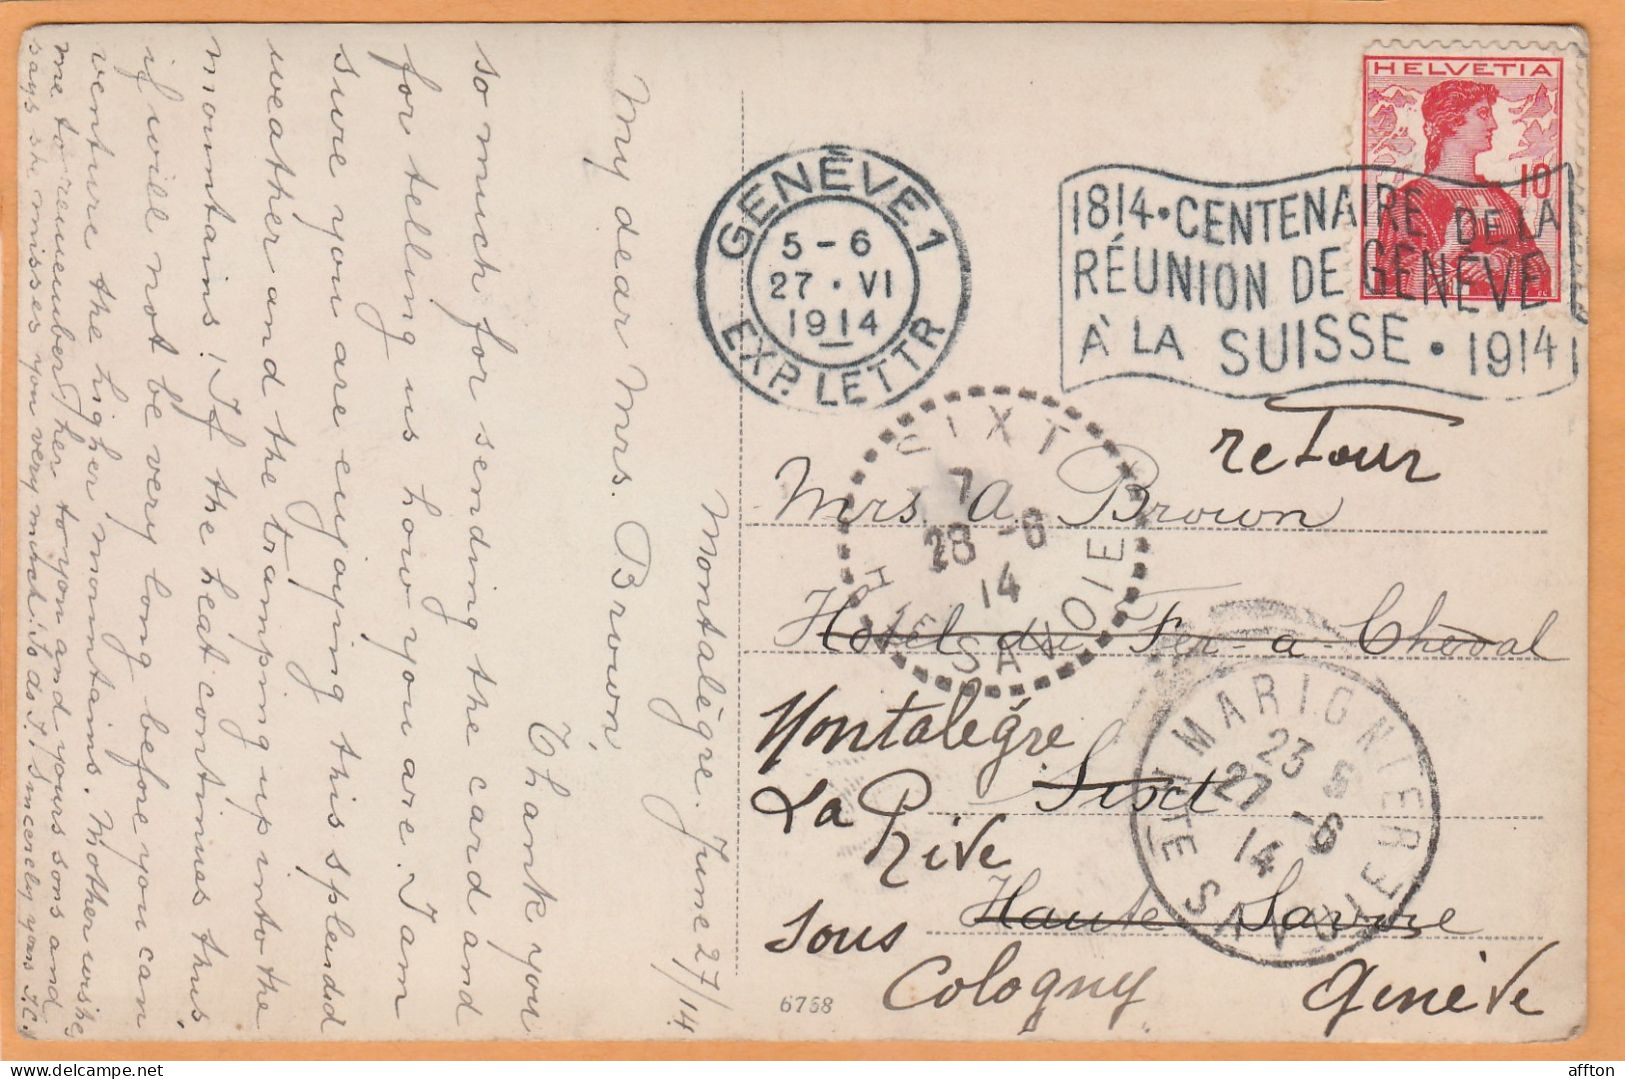 Montalègre. June 27/14.
My dear Mrs. Brown,
Thank you
so much for sending the card and
for telling us how you are. I am
sure you are enjoying this splendid
weather and the tramping up into the
mountains! If the heat continues thus,
it will not be very long before you can
venture the higher mountains. Mother wishes
me to remember her to you and yours sons and
says she misses you very much. So do I! Sincerely yours J.C.
HELVETIA
10
GENÈVE 1
5-6
27.VI
1914
EXP. LETTR
1814•CENTENAIRE DE LA
RÉUNION DE GENÈVE
À LA SUISSE • 1914
retour
SIXT
7
28 -6
14
HTE SAVOIE
Mrs. A. Brown
Hotel du Fer-a-Cheval
Sixt
Haute Savoie
MARIGNIER
23 5
27 -6
14
HTE SAVOIE
Montalègre
La Rive
sous
Cologny Genève
6758
affton